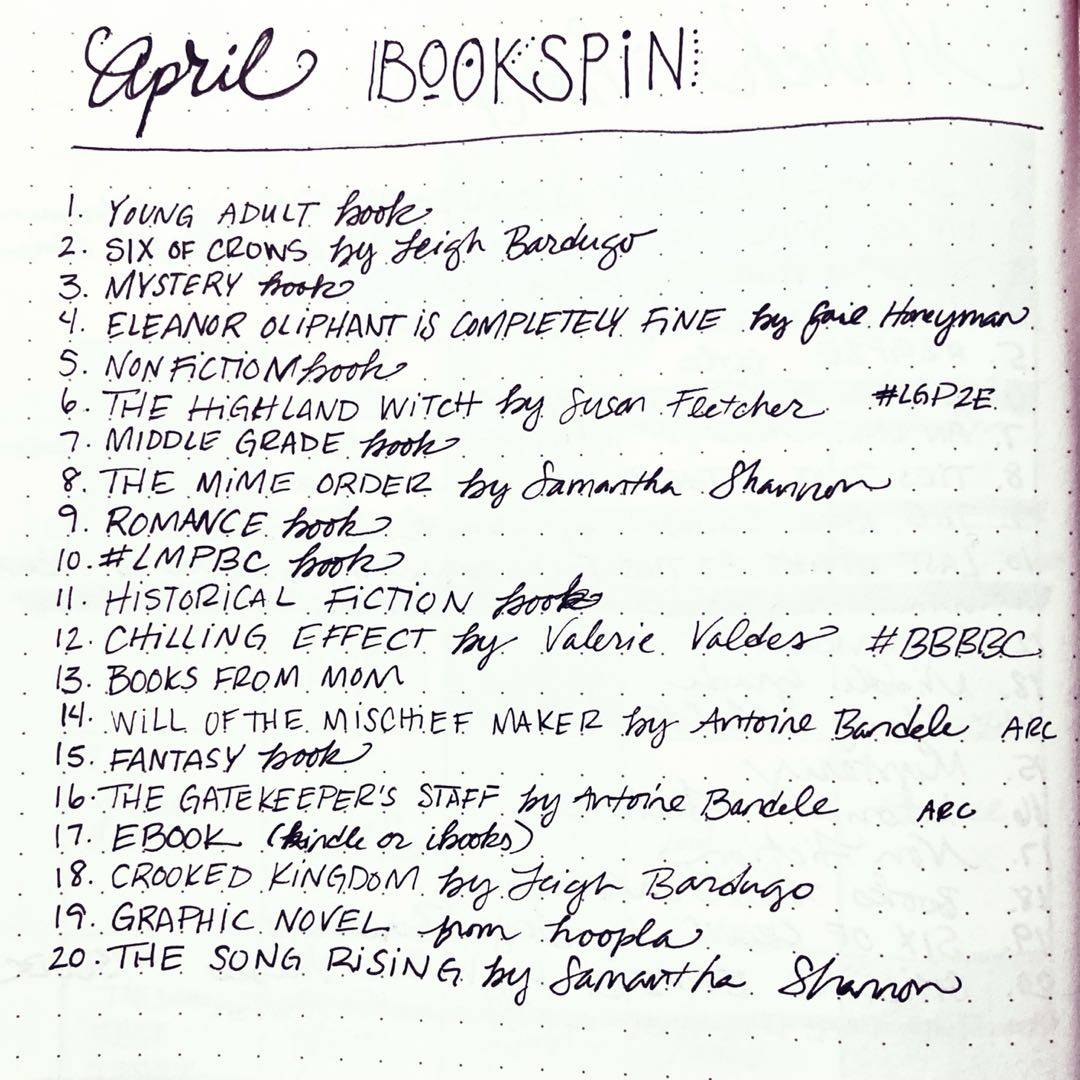 April BOOKSPIN
1. YOUNG ADULT book
2. SIX OF CROWS by Leigh Bardugo
3. MYSTERY book
4. ELEANOR OLIPHANT iS COMPLETELY FiNE by Gail Honeyman
5. NONFiCTiON book
6. THE HiGHLAND WiTCH by Susan Fletcher #LGP2E
7. MiDDLE GRADE book
8. THE MiME ORDER by Samantha Shannon
9. ROMANCE book
10. #LMPBC book
11. HiSTORiCAL FiCTiON book
12. CHiLLiNG EFFECT by Valerie Valdes #BBBBC
13. BOOKS FROM MOM
14. WiLL OF THE MiSCHiEF MAKER by Antoine Bandele ARC
15. FANTASY book
16. THE GATEKEEPER'S STAFF by Antoine Bandele ARC
17. EBOOK (kindle or ibooks)
18. CROOKED KiNGDOM by Leigh Bardugo
19. GRAPHiC NOVEL from hoopla
20. THE SONG RiSiNG by Samantha Shannon